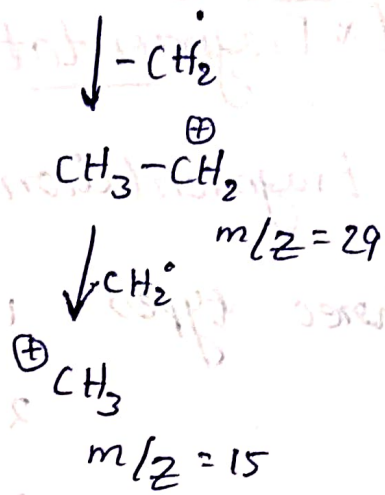 -CH2•
CH3-CH2⊕
m/z=29
-CH2•
⊕CH3
m/z=15